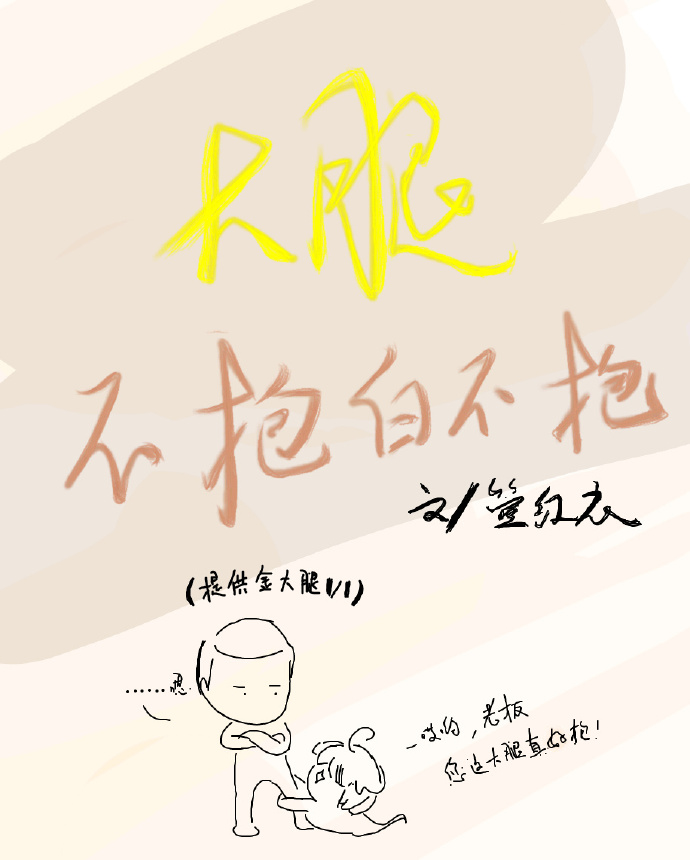 大腿
不抱白不抱
文/笙红衣
(提供金大腿1/1)
……嗯.
哎哟,老板
您这大腿真好抱!